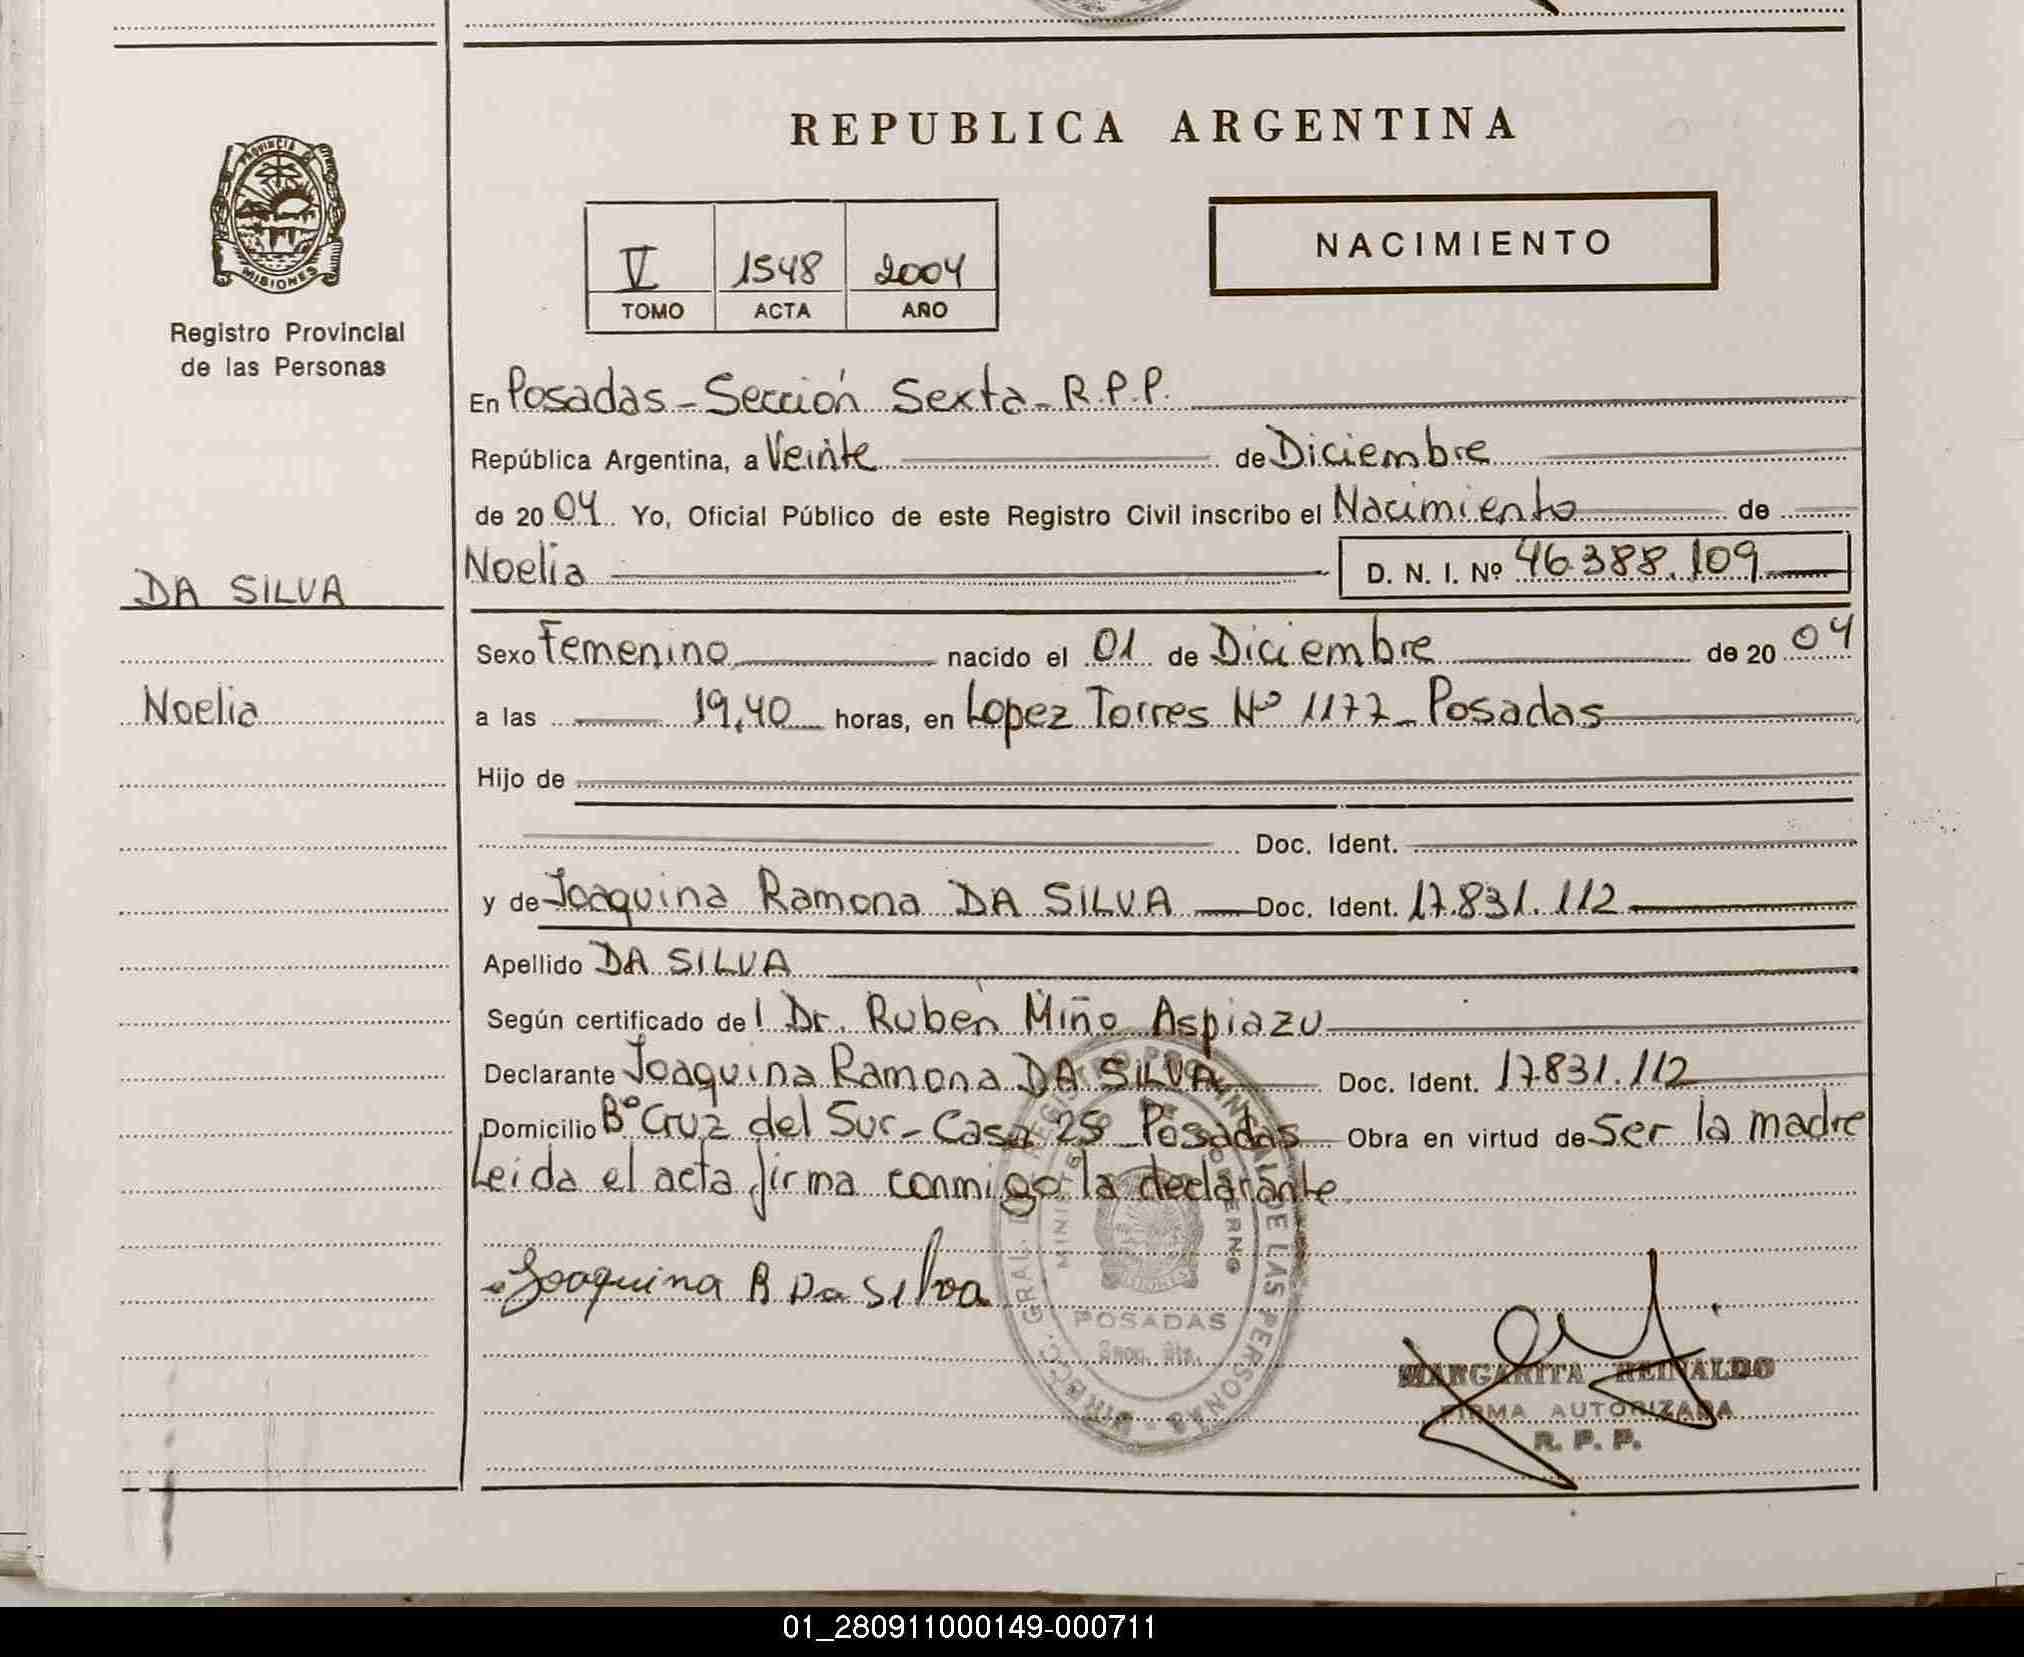 REPUBLICA ARGENTINA
PROVINCIA DE
MISIONES
Registro Provincial
de las Personas
V 1548 2004
TOMO ACTA AÑO
NACIMIENTO
En Posadas - Sección Sexta - R.P.P.
República Argentina, a Veinte de Diciembre
de 2004 Yo, Oficial Público de este Registro Civil inscribo el Nacimiento de
DA SILVA
Noelia D. N. I. Nº 46.388.109
Sexo Femenino nacido el 01 de Diciembre de 2004
Noelia
a las 19,40 horas, en Lopez Torres Nº 1177 - Posadas
Hijo de
Doc. Ident.
y de Joaquina Ramona DA SILVA Doc. Ident. 17.831.112
Apellido DA SILVA
Según certificado del Dr. Rubén Miño Aspiazu
Declarante Joaquina Ramona DA SILVA Doc. Ident. 17.831.112
Domicilio Bº Cruz del Sur - Casa 25 - Posadas Obra en virtud de ser la madre
Leída el acta firma conmigo la declarante
Joaquina R Da Silva
DIRECC. GRAL. DE REGISTRO PROVINCIAL DE LAS PERSONAS
MINISTERIO DE GOBIERNO
POSADAS
MARGARITA REINALDO
FIRMA AUTORIZADA
R. P. P.
01_280911000149-000711